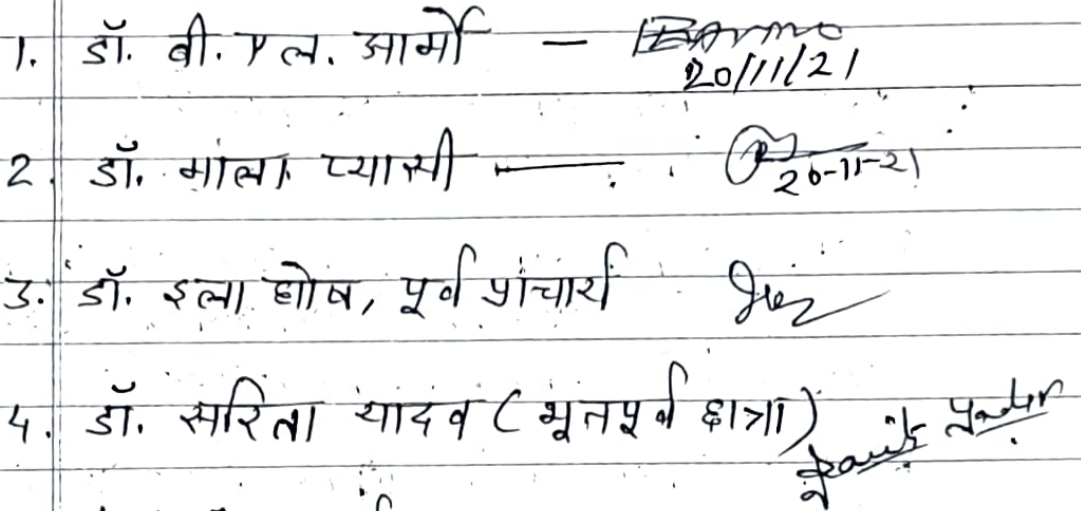 1. डॉ. बी. एल. आर्मो —
20/11/21
2. डॉ. माला प्यासी —
20-11-21
3. डॉ. इला घोष, पूर्व प्राचार्य
4. डॉ. सरिता यादव (भूतपूर्व छात्रा)